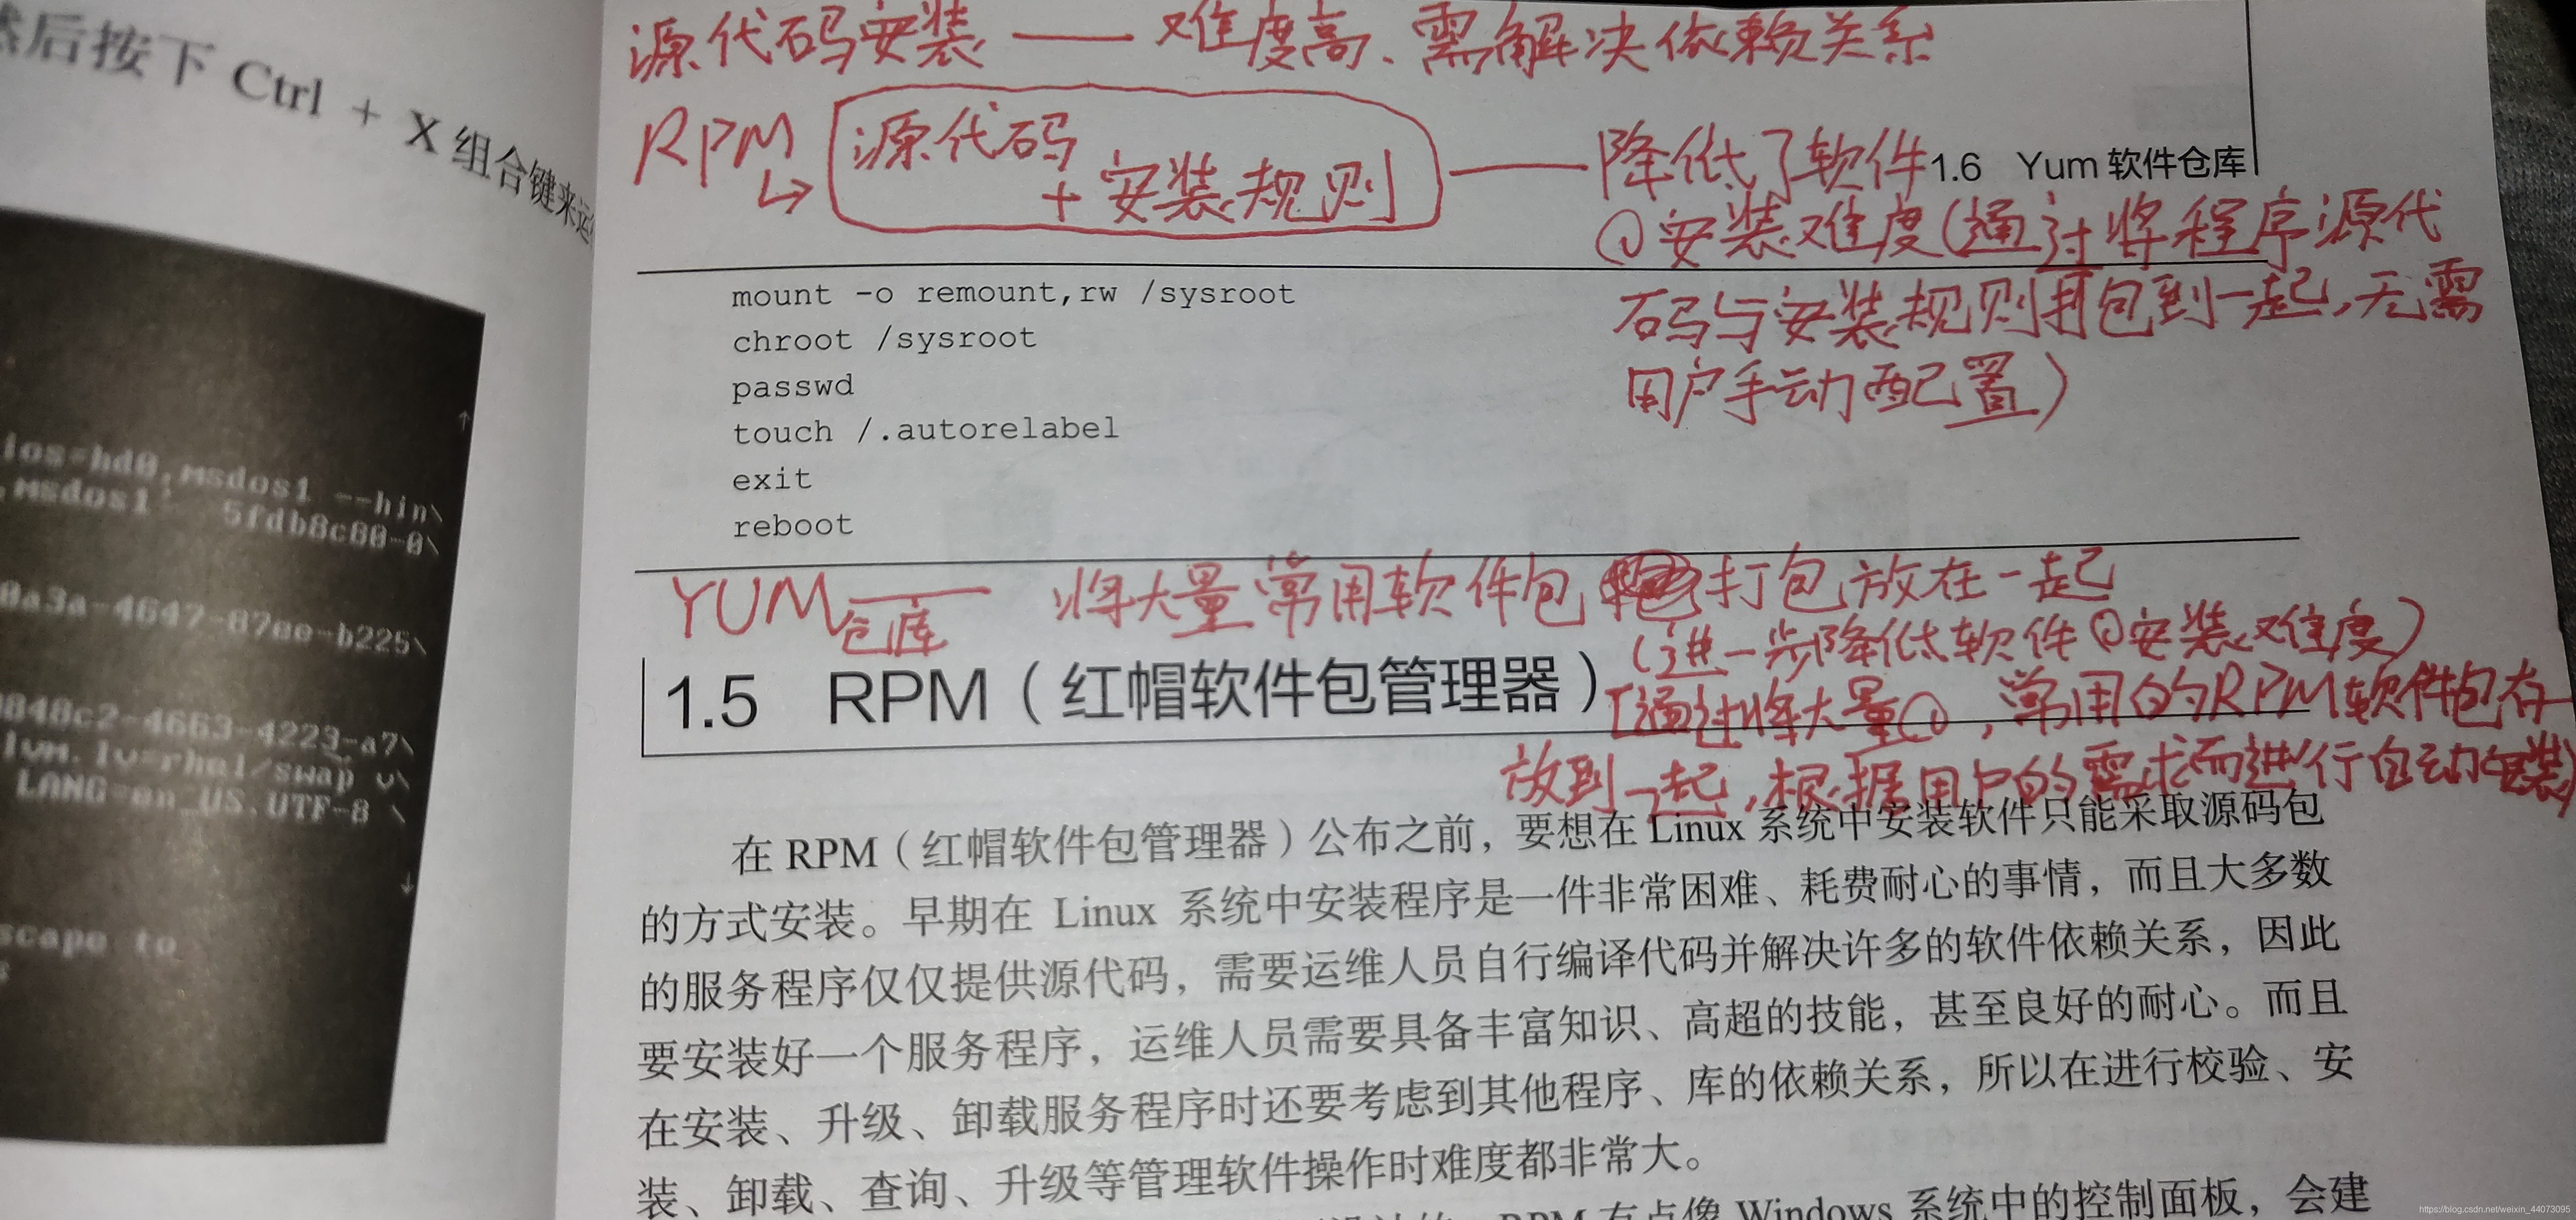 然后按下 Ctrl + X 组合键来运
ios=hd0,msdos1 --hin\
,msdos1' 5fdb8c80-0\
0a3a-4647-87ee-b225\
0848c2-4663-4223-a7\
lvm.lv=rhel/swap v\
LANG=en_US.UTF-8 \
scape to
源代码安装 —— 难度高、需解决依赖关系
RPM
源代码
+ 安装规则
—— 降低了软件
1.6 Yum 软件仓库
的安装难度(通过将程序源代
码与安装规则打包到一起,无需
用户手动配置)
mount -o remount,rw /sysroot
chroot /sysroot
passwd
touch /.autorelabel
exit
reboot
YUM仓库 —— 将大量常用软件包打包放在一起
(进一步降低软件的安装难度)
1.5 RPM（红帽软件包管理器）
[通过将大量的,常用的RPM软件包存
放到一起,根据用户的需求而进行自动安装]
在 RPM（红帽软件包管理器）公布之前，要想在 Linux 系统中安装软件只能采取源码包
的方式安装。早期在 Linux 系统中安装程序是一件非常困难、耗费耐心的事情，而且大多数
的服务程序仅仅提供源代码，需要运维人员自行编译代码并解决许多的软件依赖关系，因此
要安装好一个服务程序，运维人员需要具备丰富知识、高超的技能，甚至良好的耐心。而且
在安装、升级、卸载服务程序时还要考虑到其他程序、库的依赖关系，所以在进行校验、安
装、卸载、查询、升级等管理软件操作时难度都非常大。
RPM 有点像 Windows 系统中的控制面板，会建
https://blog.csdn.net/weixin_44073095